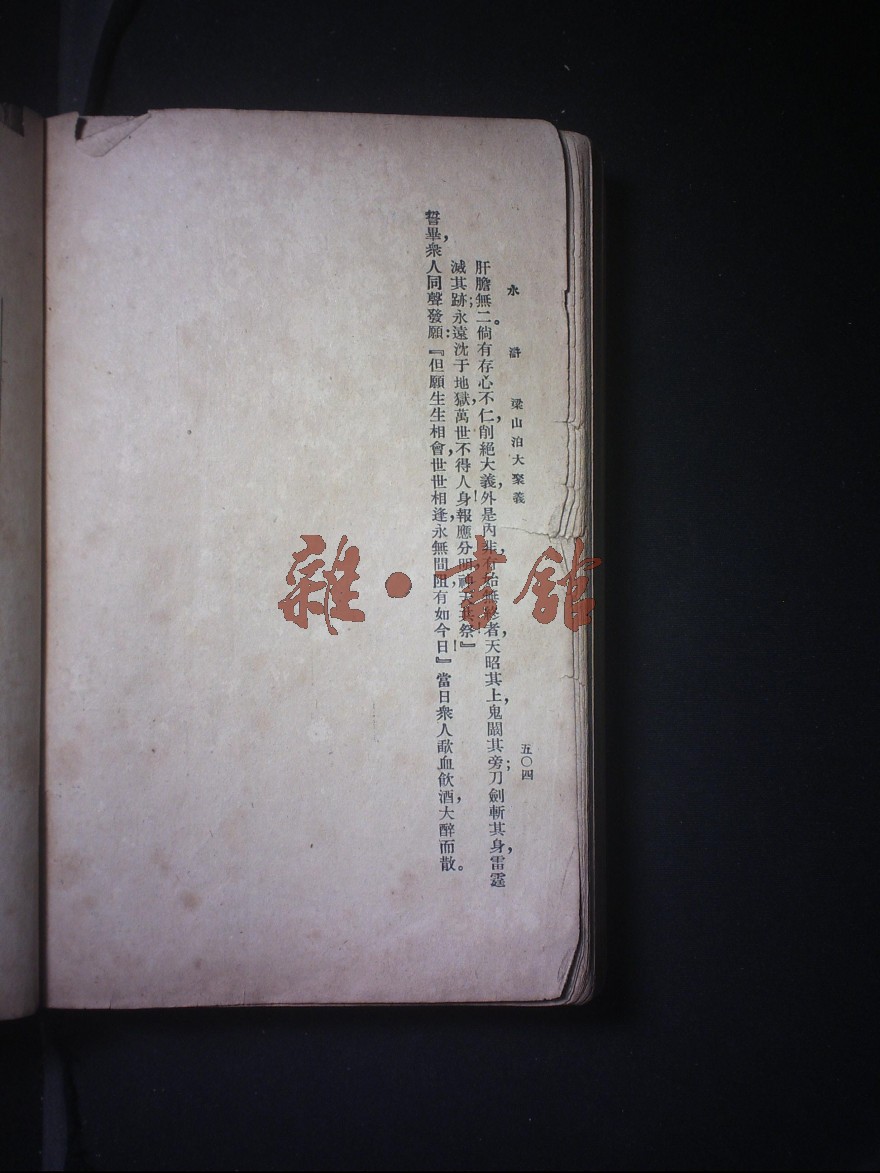 水滸 梁山泊大聚義 五〇四
肝膽無二。倘有存心不仁，削絕大義，外是內非，有始無終者，天昭其上，鬼闞其旁；刀劍斬其身，雷霆
滅其跡；永遠沈于地獄，萬世不得人身！報應分明，神天共祭！』
誓畢，衆人同聲發願：『但願生生相會，世世相逢，永無間阻，有如今日！』當日衆人歃血飲酒，大醉而散。
雜·書館